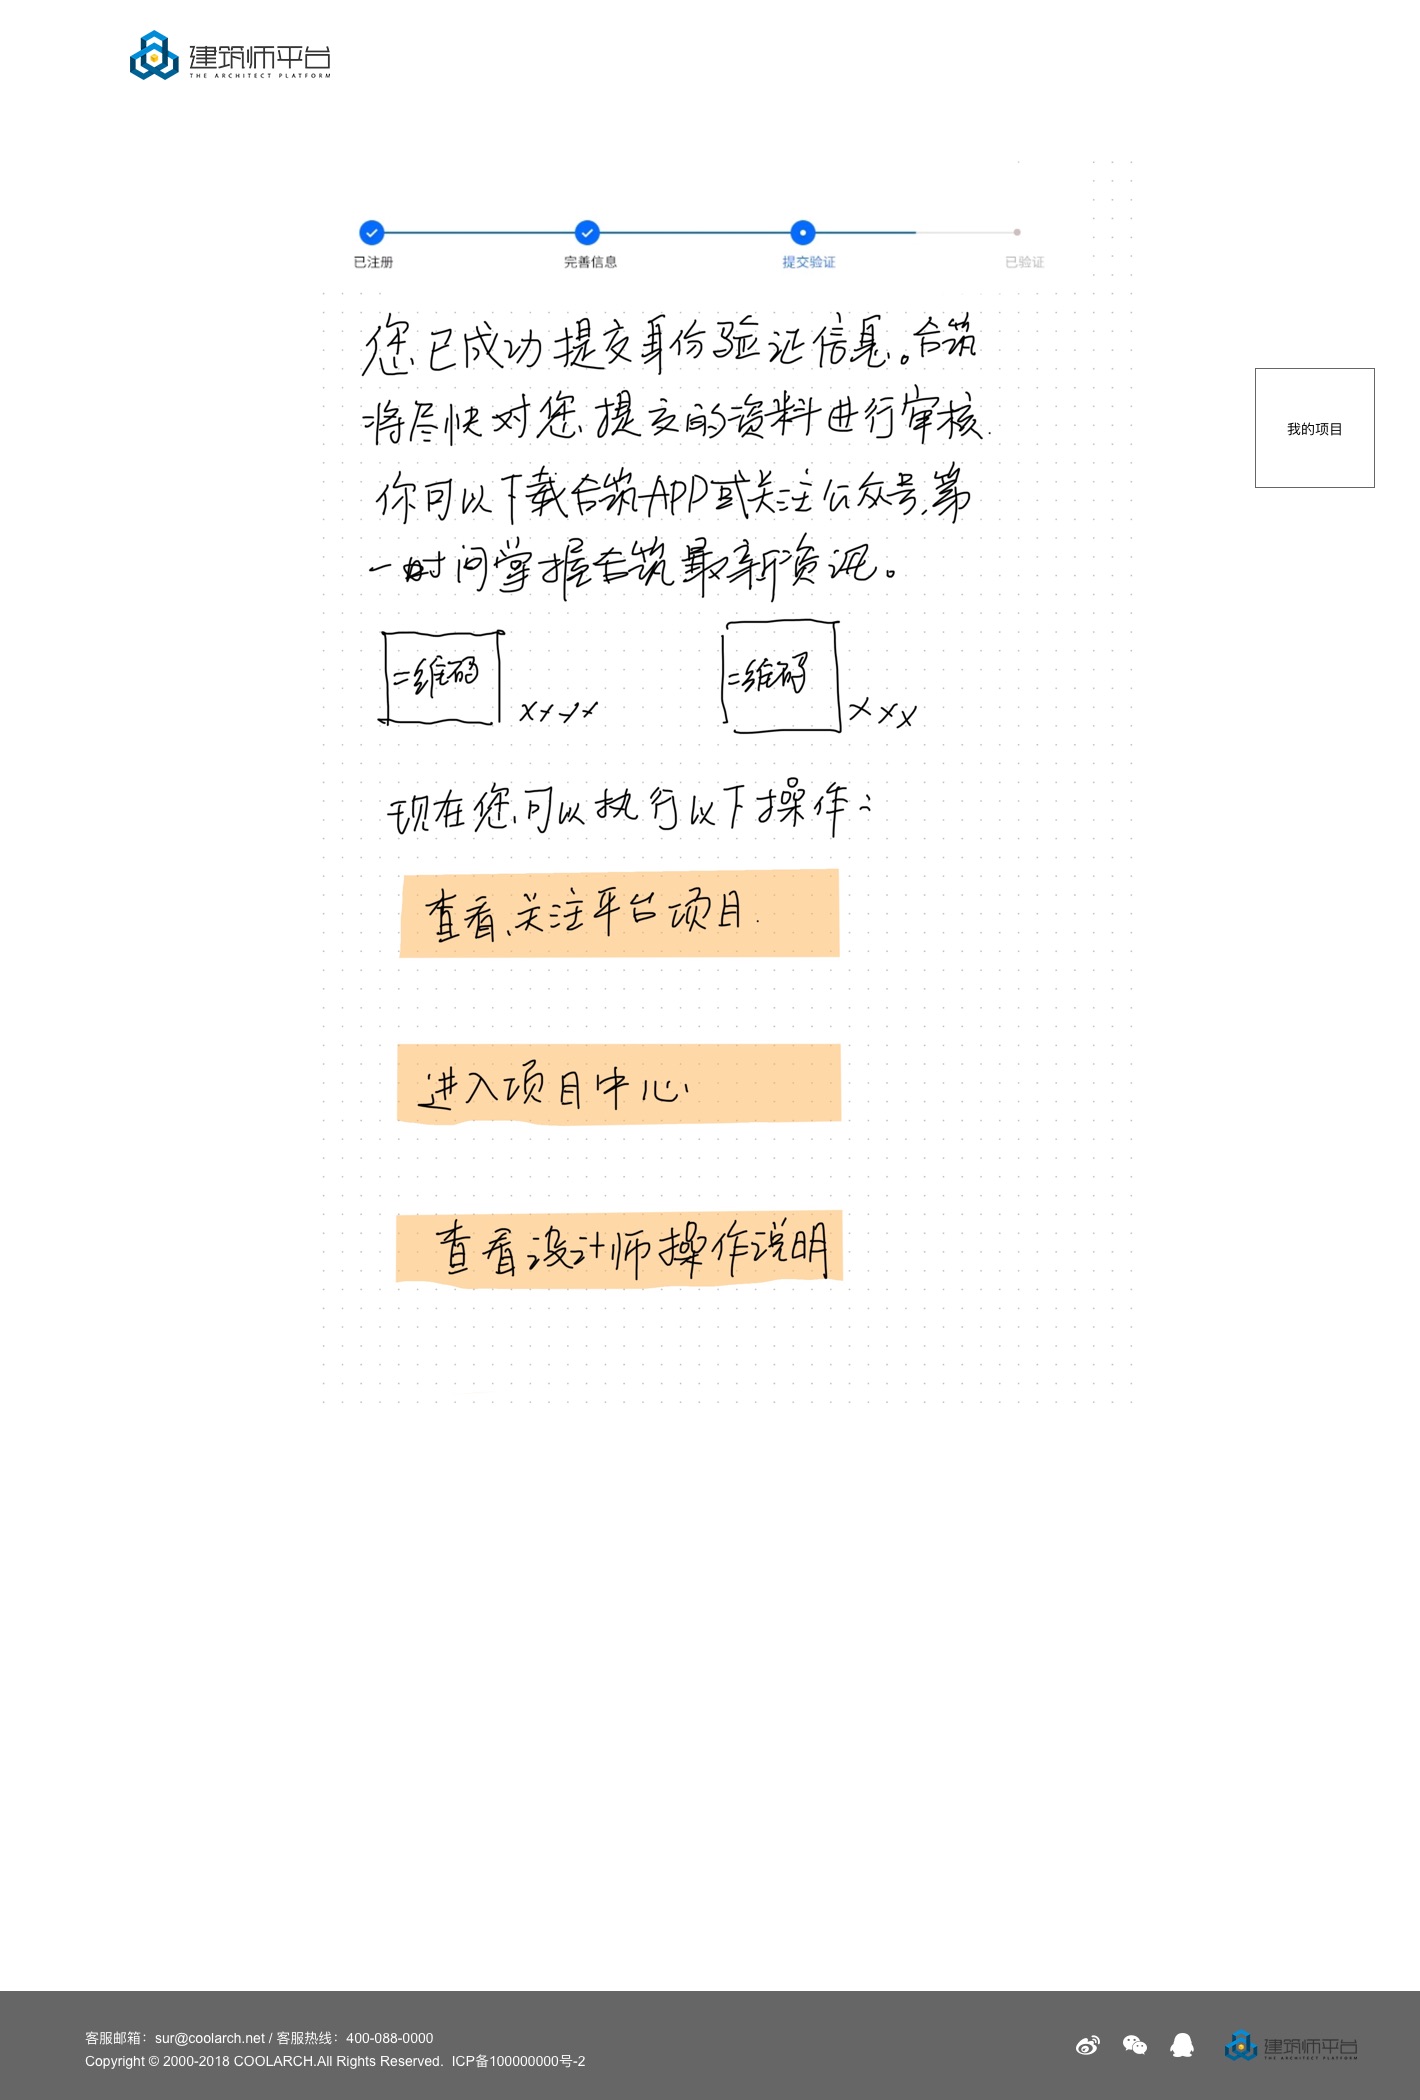 建筑师平台
THE ARCHITECT PLATFORM
已注册 完善信息 提交验证 已验证
您已成功提交身份验证信息。合筑
将尽快对您提交的资料进行审核.
你可以下载合筑APP或关注公众号,第
一时间掌握合筑最新资讯。
我的项目
二维码 xxxx 二维码 xxx
现在您可以执行以下操作:
查看、关注平台项目.
进入项目中心
查看设计师操作说明
客服邮箱：sur@coolarch.net / 客服热线：400-088-0000
Copyright © 2000-2018 COOLARCH.All Rights Reserved. ICP备100000000号-2
建筑师平台
THE ARCHITECT PLATFORM